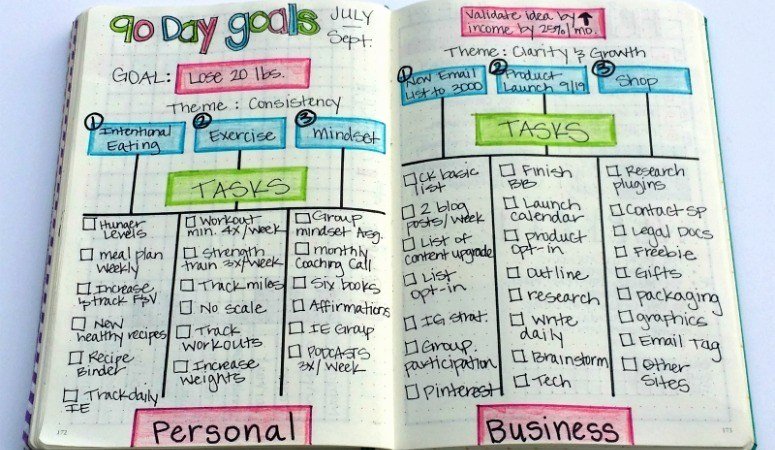 90 Day goals
JULY
Sept.
GOAL:
Lose 20 lbs.
Theme: Consistency
1
Intentional
Eating
2
Exercise
3
Mindset
TASKS
Hunger
Levels
meal plan
Weekly
Increase
& track F&V
New
healthy recipes
Recipe
Binder
Track daily
IE
Workout
min. 4x/week
Strength
train 3x/week
Track miles
No scale
Track
Workouts
Increase
Weights
Group
mindset Asg.
monthly
Coaching Call
Six books
Affirmations
IE Group
PODCASTS
3x/Week
Personal
172
Validate idea by ↑
income by 25%/mo.
Theme: Clarity & Growth
1
New Email
List to 3000
2
Product
Launch 9/19
3
Shop
TASKS
CK basic
list
2 blog
posts/week
List of
content upgrade
List
opt-in
IG strat.
Group
participation
Pinterest
Finish
BB
Launch
calendar
product
opt-in
Outline
research
Write
daily
Brainstorm
Tech
Research
plugins
Contact SP
Legal Docs
Freebie
Gifts
packaging
graphics
Email Tag
Other
Sites
Business
173